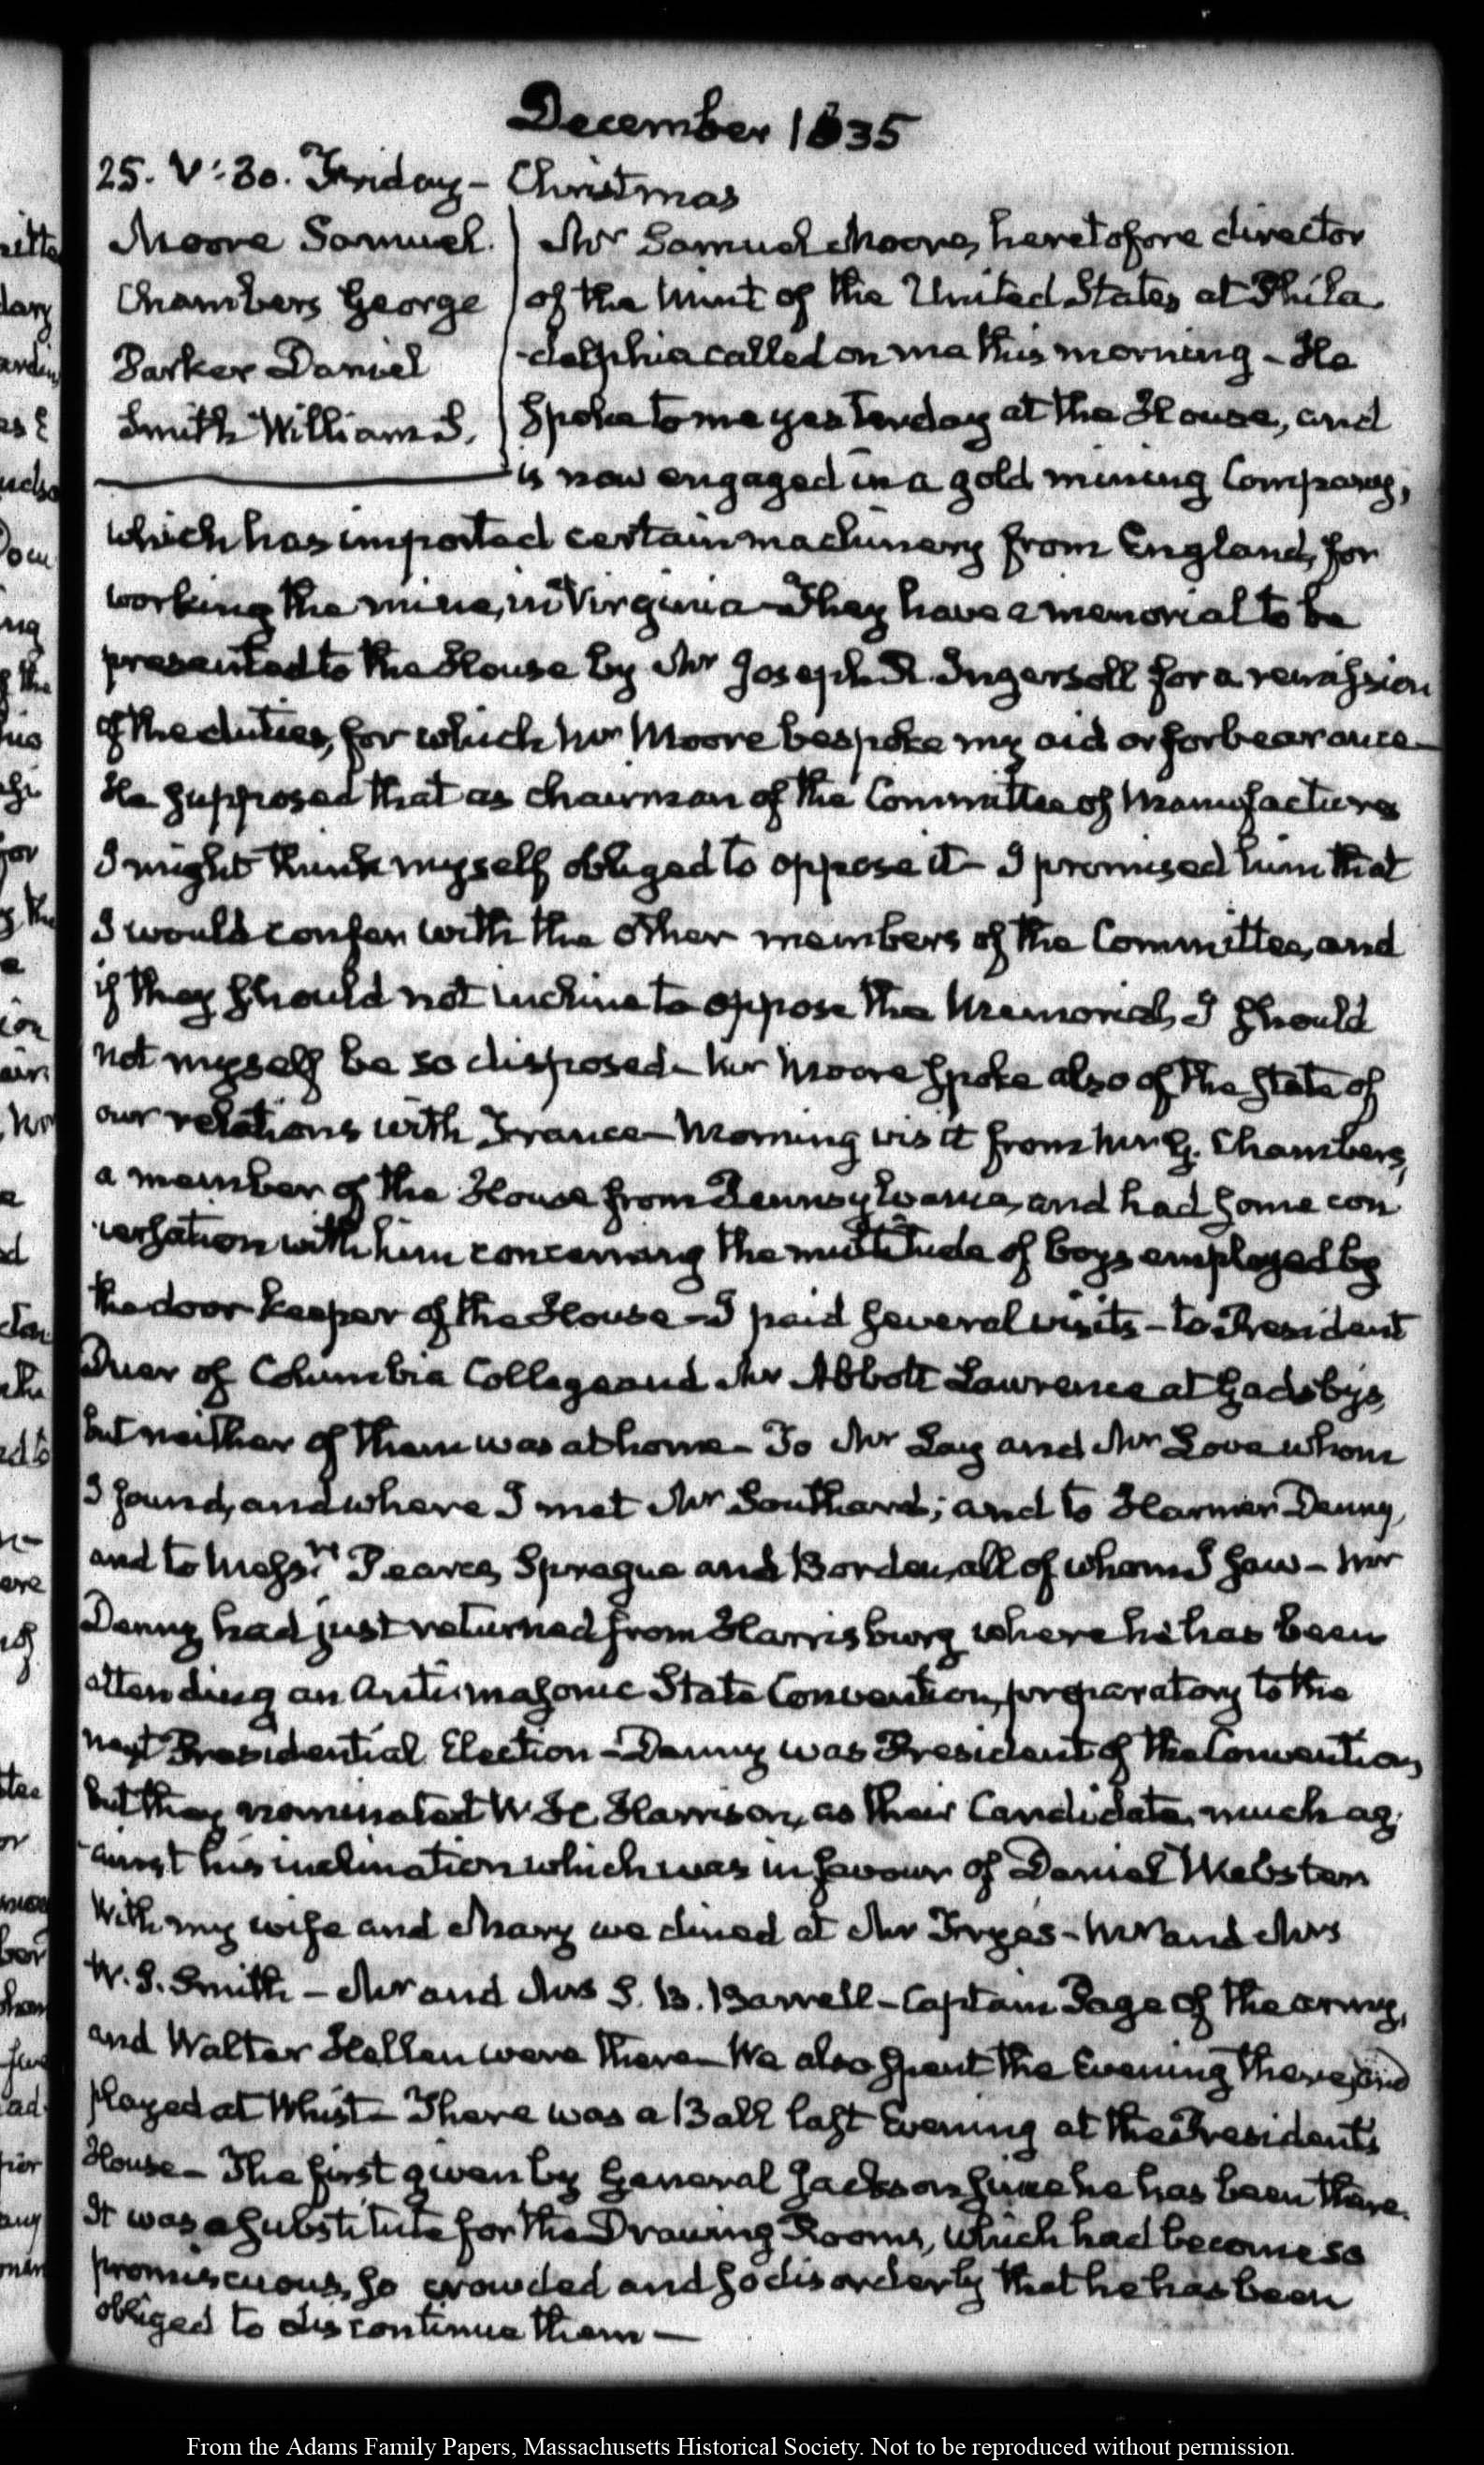 December 1835
25. V:30. Friday- Christmas
Moore Samuel.
Chambers George
Parker Daniel
Smith William S.
Mr Samuel Moore, heretofore director
of the Mint of the United States at Phila
-delphia called on me this morning - He
spoke to me yesterday at the House, and
is now engaged in a gold mining Company,
which has imported certain machinery from England, for
working the mine, in Virginia - They have a memorial to be
presented to the House by Mr Joseph R. Ingersoll for a remission
of the duties, for which Mr Moore bespoke my aid or forbearance -
He supposed that as chairman of the Committee of Manufactures
I might think myself obliged to oppose it - I promised him that
I would confer with the other members of the Committee, and
if they should not incline to oppose the Memorial, I should
not myself be so disposed - Mr Moore spoke also of the state of
our relations with France - Morning visit from Mr G. Chambers,
a member of the House from Pennsylvania, and had some con
-versation with him concerning the multitude of boys employed by
the door keeper of the House - I paid several visits - to President
Duer of Columbia College and Mr Abbott Lawrence at Gadsby's,
but neither of them was at home - To Mr Lay and Mr Love whom
I found, and where I met Mr Southard; and to Harmar Denny,
and to Messrs Pearce, Sprague and Borden, all of whom I saw - Mr
Denny had just returned from Harrisburg where he has been
attending an Antimasonic State Convention, preparatory to the
next Presidential Election - Denny was President of the Convention,
but they nominated W. H. Harrison, as their Candidate, much ag
-ainst his inclination which was in favour of Daniel Webster.
With my wife and Mary we dined at Mr Frye's - Mr and Mrs
W. S. Smith - Mr and Mrs S. B. Barrell - Captain Page of the army,
and Walter Hellen were there - We also spent the Evening there, and
played at Whist - There was a Ball last Evening at the President's
House - The first given by General Jackson since he has been there.
It was a substitute for the Drawing Rooms, which had become so
promiscuous, so crowded and so disorderly that he has been
obliged to discontinue them -
From the Adams Family Papers, Massachusetts Historical Society. Not to be reproduced without permission.